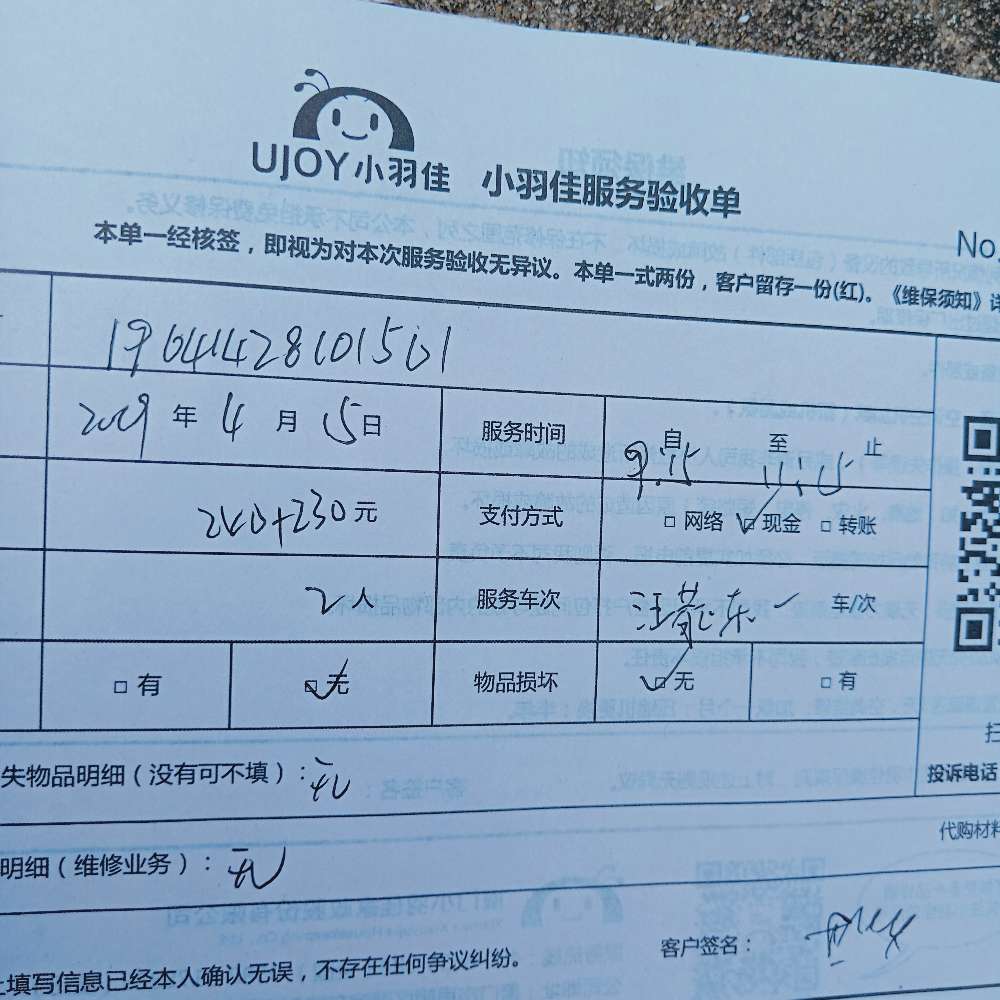 UJOY小羽佳 小羽佳服务验收单
No
本单一经核签，即视为对本次服务验收无异议。本单一式两份，客户留存一份(红)。《维保须知》详
2019年4月15日 服务时间 自9:15至11:15止
240+230元 支付方式 □网络 ☑现金 □转账
2人 服务车次 一 车/次
□有 ☑无 物品损坏 ☑无 □有
扫
失物品明细（没有可不填）：无
投诉电话
代购材料
明细（维修业务）：无
客户签名：
上填写信息已经本人确认无误，不存在任何争议纠纷。